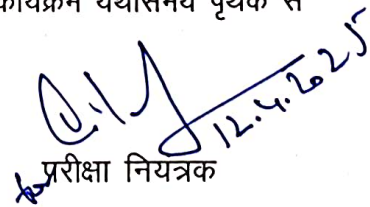 कार्यक्रम यथासमय पृथक से
12.4.2025
परीक्षा नियंत्रक